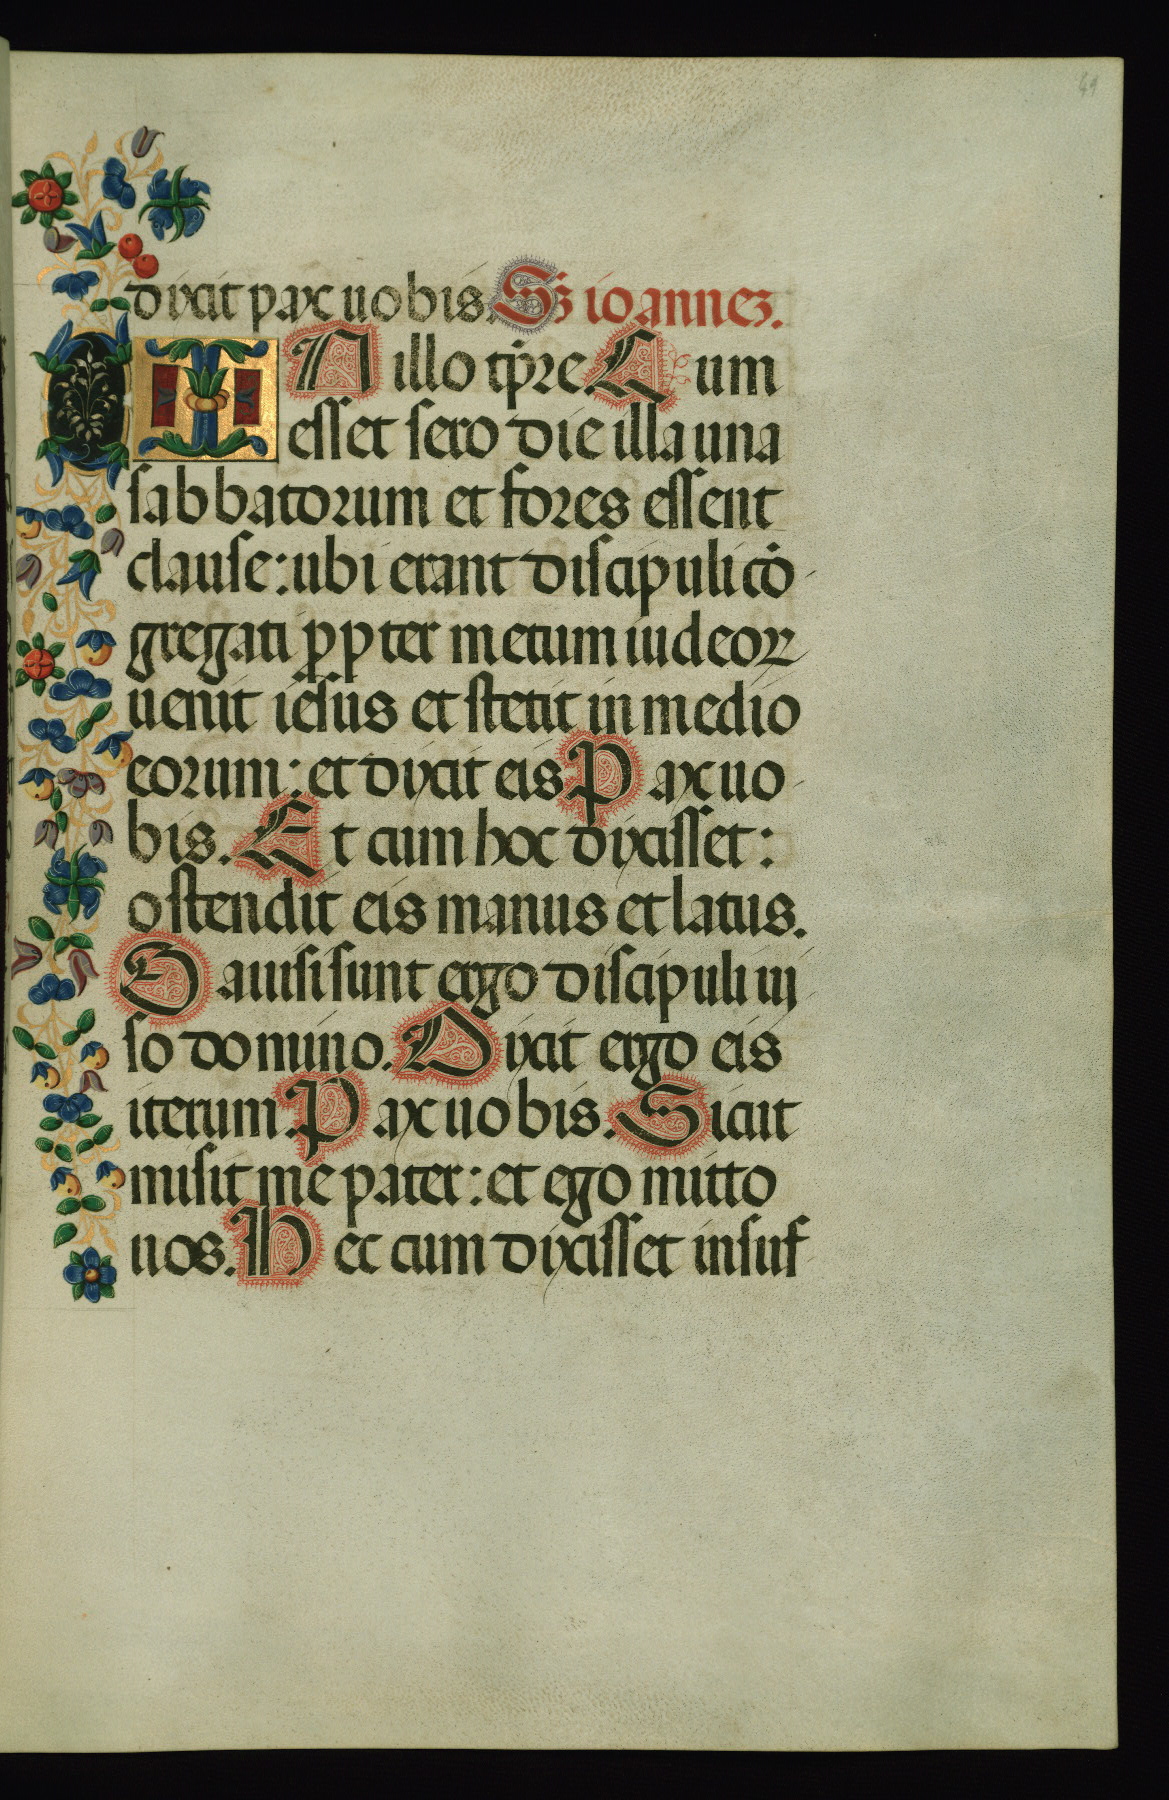 49
dixit pax uobis. Sz ioannez.
IN illo tp̄re. Cum
esset sero die illa una
sabbatorum et fores essent
clause: ubi erant discipuli cō
gregati ꝓpter metum iudeoꝝ
uenit iesus et stetit in medio
eorum: et dixit eis Pax uo
bis. Et cum hoc dixisset:
ostendit eis manus et latus.
Gauisi sunt ergo discipuli ui
so domino. Dixit ergo eis
iterum. Pax uobis. Sicut
misit me pater: et ego mitto
uos. Hec cum dixisset insuf